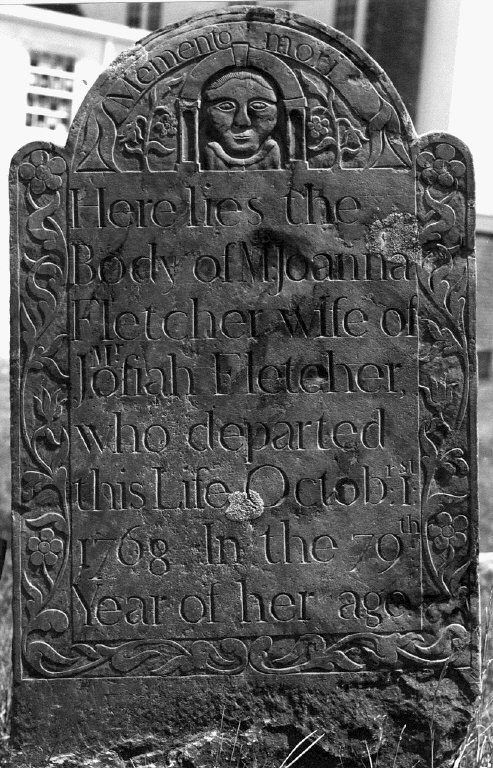 Memento mori
Here lies the
Body of Mrs Joanna
Fletcher wife of
Mr Joſiah Fletcher,
who departed
this Life Octob.r 1st
1768 In the 79th
Year of her age